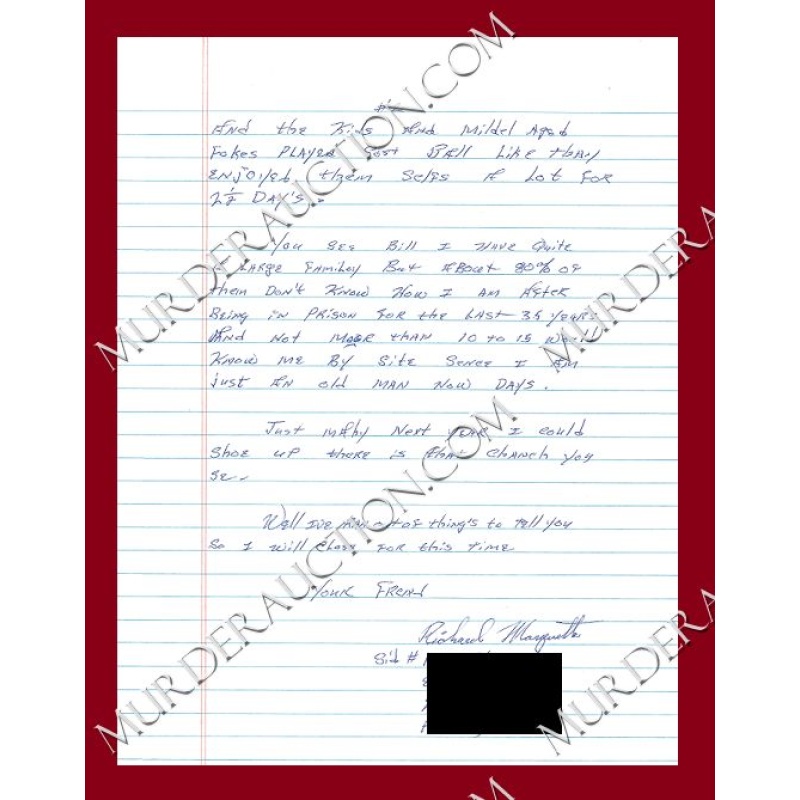 And the Kids And Mildel Aged
Fokes PLAyed Soft BAll Like thay
ENJOiyed them Selfs A Lot FoR
2½ DAy's.
You see Bill I HAVE Quite
A LARge FAmiley But About 80% of
them Don't Know How I Am AfteR
Being in PRison FoR the LAst 35 yeARs
And Not moRe than 10 to 15 would
Know me By Site Sence I Am
just An old mAN Now DAys.
Just mAby Next yeAR I could
Shoe up theRe is thAt ChANch you
se.
Well I've RAN out of thing's to tell you
So I will Close FoR this time
YouR FReNd
Richard Marquette
Sid #
MURDERAUCTION.COM
MURDERAUCTION.COM
MURDERAUCTION.COM
MURDERAUCTION.COM